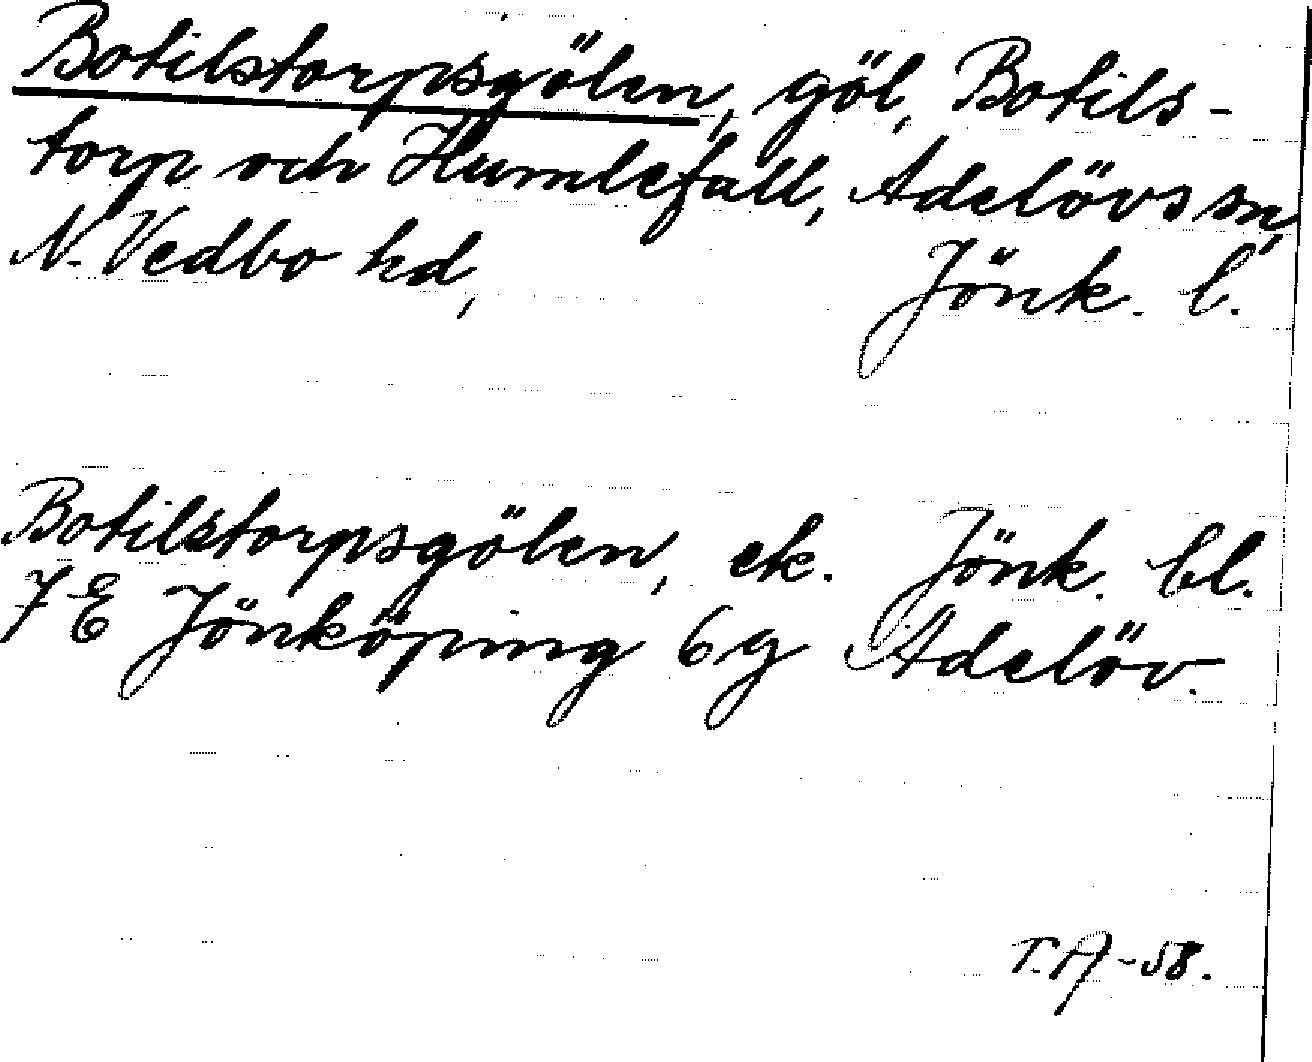 Botilstorpsgölen, göl, Botils-
torp och Humlefall, Adelövs sn,
N. Vedbo hd, Jönk. l.
Botilstorpsgölen, ek. Jönk. bl.
7 E Jönköping 6 g Adelöv.
T.A-58.